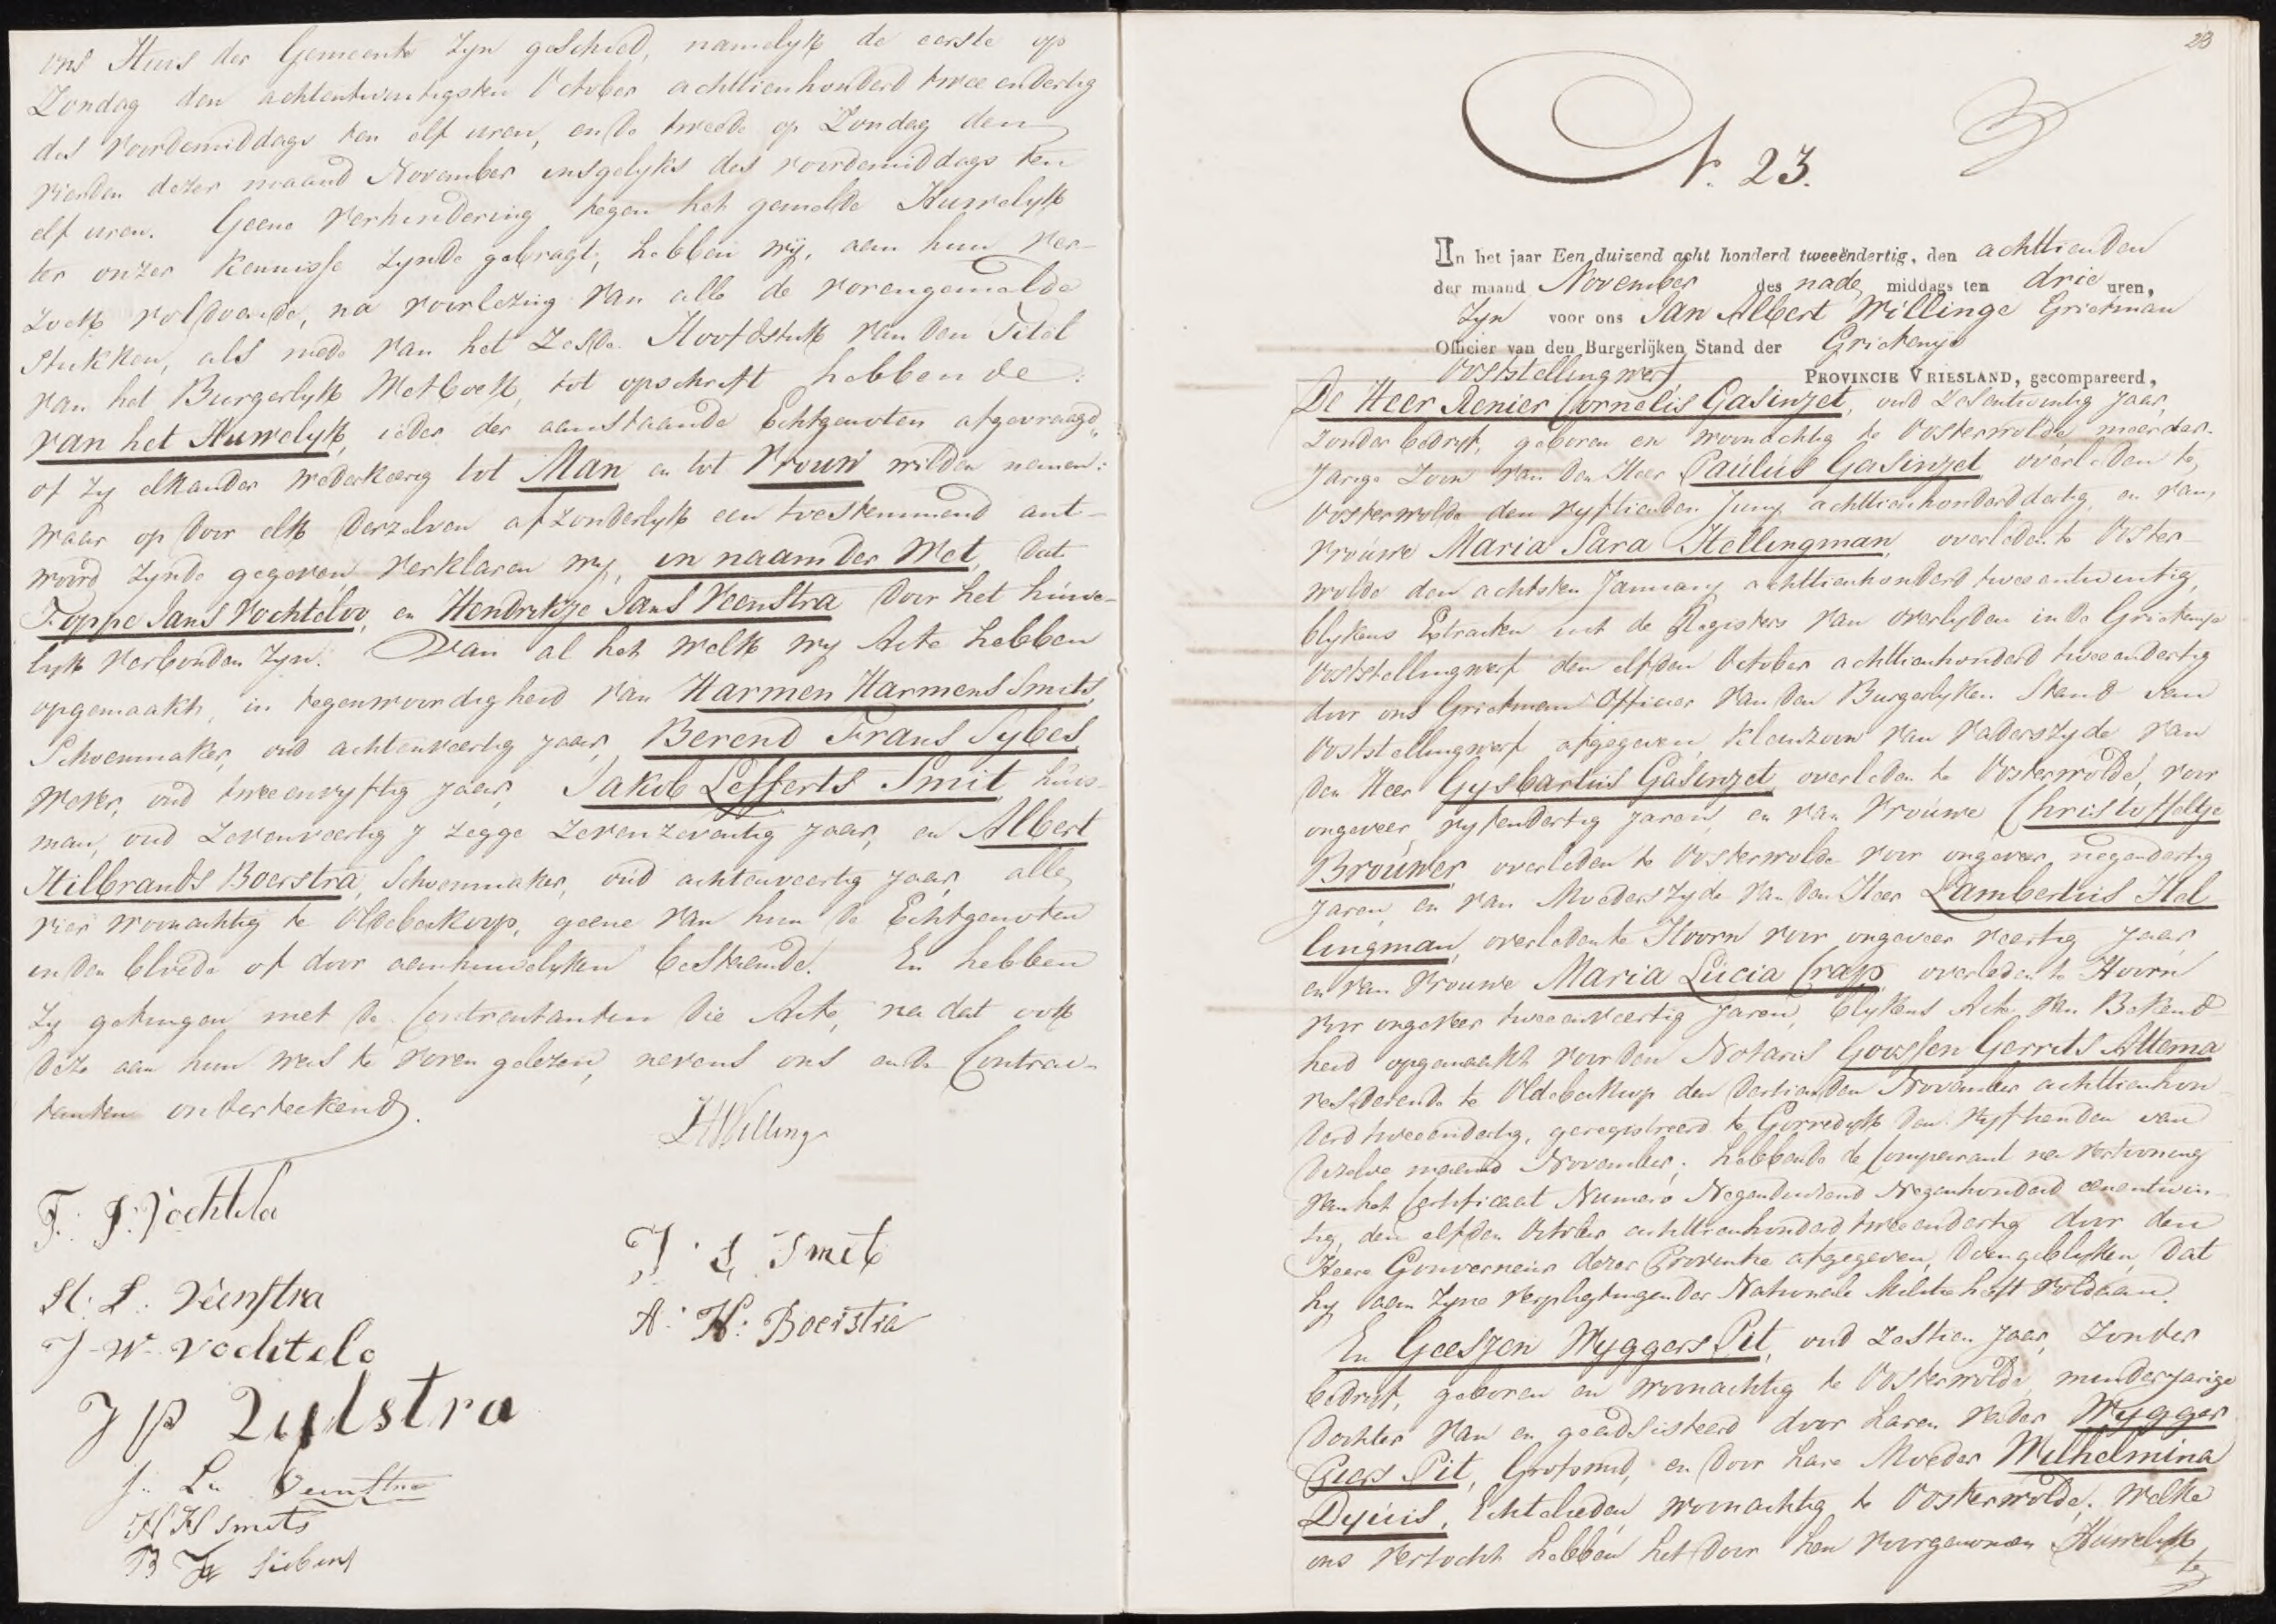 ons Huis der Gemeente Zyn geschied, namelyk de eerste op
Zondag den achtentwintigsten October achttienhonderd twee endertig
des voordemiddags ten elf uren, en de tweede op Zondag den
vierden dezer maand November insgelyks des voordemiddags ten
elf uren. Geene verhindering tegen het gemelde Huwelyk
ter onzer kennisse zynde gebragt, hebben wij, aan hun ver-
zoek voldoende, na voorlezing van alle de vorengemelde
stukken, als mede van het Zesde Hoofdstuk van den Titel
van het Burgerlyk Wetboek, tot opschrift hebbende:
van het Huwelyk, ieder der aanstaande Echtgenoten afgevraagd,
of zy elkander wederkeerig tot Man en tot Vrouw wilden nemen:
waar op door elk derzelven afzonderlyk een toestemmend ant-
woord zynde gegeven verklaren wy, in naam der Wet, dat
Foppe Jans Vochteloo, en Hendrikje Jans Veenstra door het huwe-
lyk verbonden zyn. Van al het welk wy Acte hebben
opgemaakt, in tegenwoordigheid van Harmen Harmens Smits,
Schoenmaker, oud achtenveertig jaar, Berend Frans Sybes,
Wever, oud tweeenvyftig jaar, Jakob Lefferts Smit, huis-
man, oud Zevenveertig / zegge Zevenzeventig jaar, en Albert
Hilbrands Boerstra, Schoenmaker, oud achtenveertig jaar, alle
vier woonachtig te Oldeberkoop, geene van hun de Echtgenoten
in den bloede of door aanhuwelyken bestaande. En hebben
zy getuigen met de Contractanten die Acte, na dat ook
deze aan hun was te voren gelezen, nevens ons en de Contrac-
tanten onderteekend.
JAWillinge
F. J. Vochtelo
H. J. Veenstra
J. W. Vochtelo
J P Zylstra
J. L. Veenstra
H H Smits
B F Siebes
J. L. Smit
A. H. Boerstra
23
N. 23.
In het jaar Een duizend acht honderd tweeëndertig, den achttienden
der maand November des nade middags ten drie uren,
Zyn voor ons Jan Albert Willinge Grietman
Officier van den Burgerlijken Stand der Grietenye
Ooststellingwerf PROVINCIE VRIESLAND, gecompareerd,
De Heer Renier Cornelis Gasinjet, oud Zesentwintig jaar,
zonder bedryf, geboren en woonachtig te Oosterwolde meerder-
jarige Zoon van den Heer Paulus Gasinjet overleden te
Oosterwolde den vyftienden Juny achttienhonderd dertig, en van
Vrouwe Maria Sara Hellingman, overleden te Ooster-
wolde den achtsten January achttienhonderd twee entwintig,
blykens Extracten uit de Registers van overlyden in de Grietenye
Ooststellingwerf den elfden October achttienhonderd tweeendertig
door ons Grietman Officier van den Burgerlyken Stand van
Ooststellingwerf afgegeven, kleinzoon van vaderszyde van
den Heer Gysbartus Gasinjet overleden te Oosterwolde, voor
ongeveer vyfendertig jaren, en van Vrouwe Christoffeltje
Brouwer overleden te Oosterwolde voor ongeveer negendertig
jaren, en van Moederszyde van den Heer Lambertus Hel
lingman, overleden te Hoorn voor ongeveer veertig jaar
en van Vrouwe Maria Lucia Crap overleden te Hoorn
voor ongeveer tweeenveertig jaren, blykens Acte van Bekend
heid opgemaakt voor den Notaris Goossen Gerrits Attema
residerende te Oldeberkoop den dertienden November achttienhon
derd tweeendertig, geregistreerd te Gorredyk den vyftienden van
dezelve maand November; hebbende de Comparant na vertooning
van het Certificaat Numero Negenduizend Negenhonderd eenentwin-
tig, den elfden October achttienhonderd tweeendertig door den
Heere Gouverneur dezer Provintie afgegeven, doen geblyken, dat
hy aan zyne verpligtingen der Nationale Militie heeft voldaan.
En Geesjen Wyggers Pit, oud zestien jaar, zonder
bedryf, geboren en woonachtig te Oosterwolde minderjarige
dochter van en geadsisteerd door haren vader Wygger
Geers Pit, Grofsmid, en door hare Moeder Wilhelmina
Dyuis, Echtelieden, woonachtig te Oosterwolde. Welke
ons verzocht hebben het door hen voorgenomen Huwelyk
te